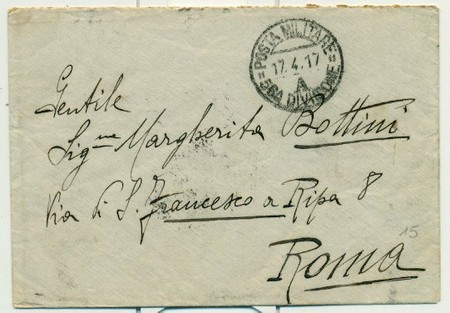 POSTA MILITARE
17.4.17
A
56A DIVISIONE
Gentile
Sig.ne Margherita Bottini
Via di S. Francesco a Ripa 8
15
Roma